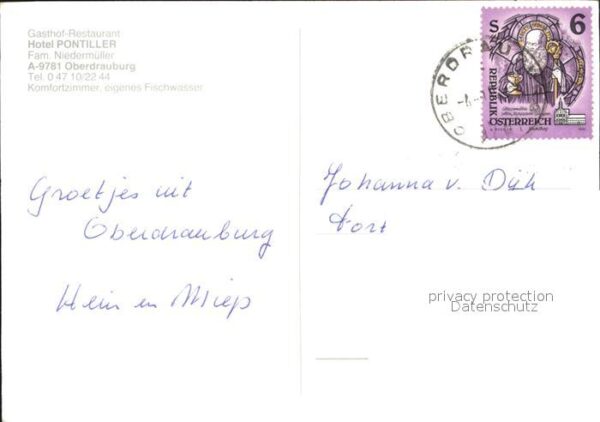 Gasthof-Restaurant
Hotel PONTILLER
Fam. Niedermüller
A-9781 Oberdrauburg
Tel. 0 47 10/22 44
Komfortzimmer, eigenes Fischwasser
S 6
REPUBLIK
ÖSTERREICH
OBERDRAU
Groetjes uit
Oberdrauburg
Hein en Miep
Johanna v. Dijk
Dort
privacy protection
Datenschutz